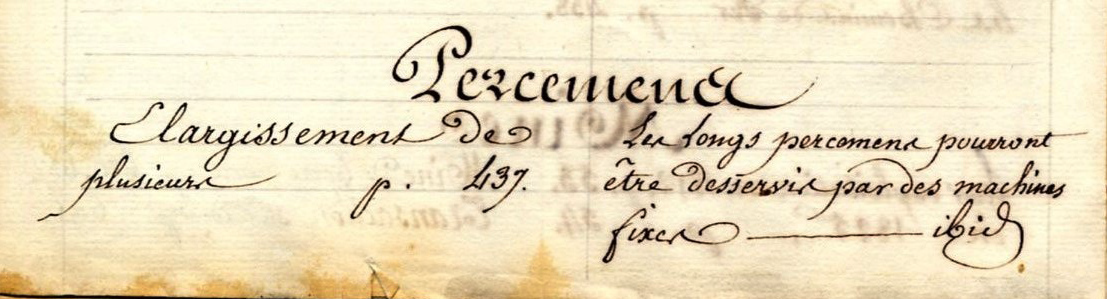 Percemens
Elargissement de
plusieurs p. 437.
Les longs percemens pourront
être desservis par des machines
fixes ——— ibid